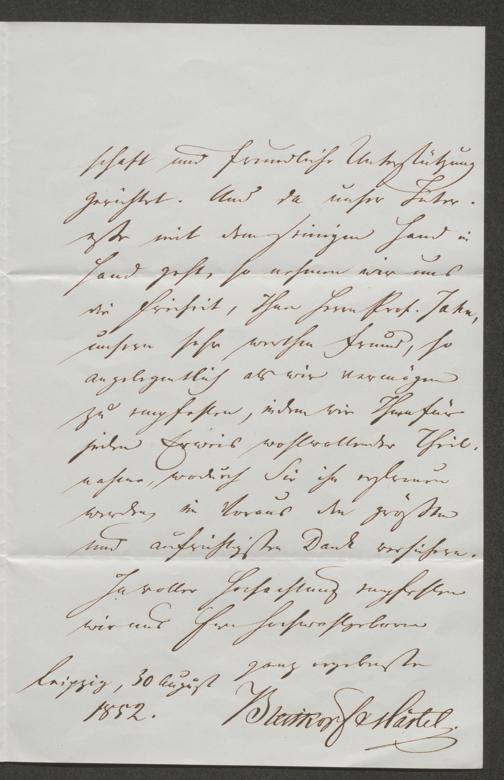 schaft und freundliche Unterstützung
gerichtet. Und da unser Inter-
esse mit dem seinigen Hand in
Hand geht, so nehmen wir uns
die Freiheit, Ihnen Herrn Prof. Jahn,
unsern sehr werthen Freund, so
angelegentlich als wir vermögen
zu empfehlen, indem wir Ihnen für
jeden Erweis wohlwollender Theil-
nahme, wodurch Sie ihn erfreuen
werden, im Voraus den größten
und aufrichtigsten Dank versichern.
In voller Hochachtung empfehlen
wir uns Ew. Hochwohlgeboren
ganz ergebenste
Leipzig, 30 August
1852.
Breitkopf & Härtel.